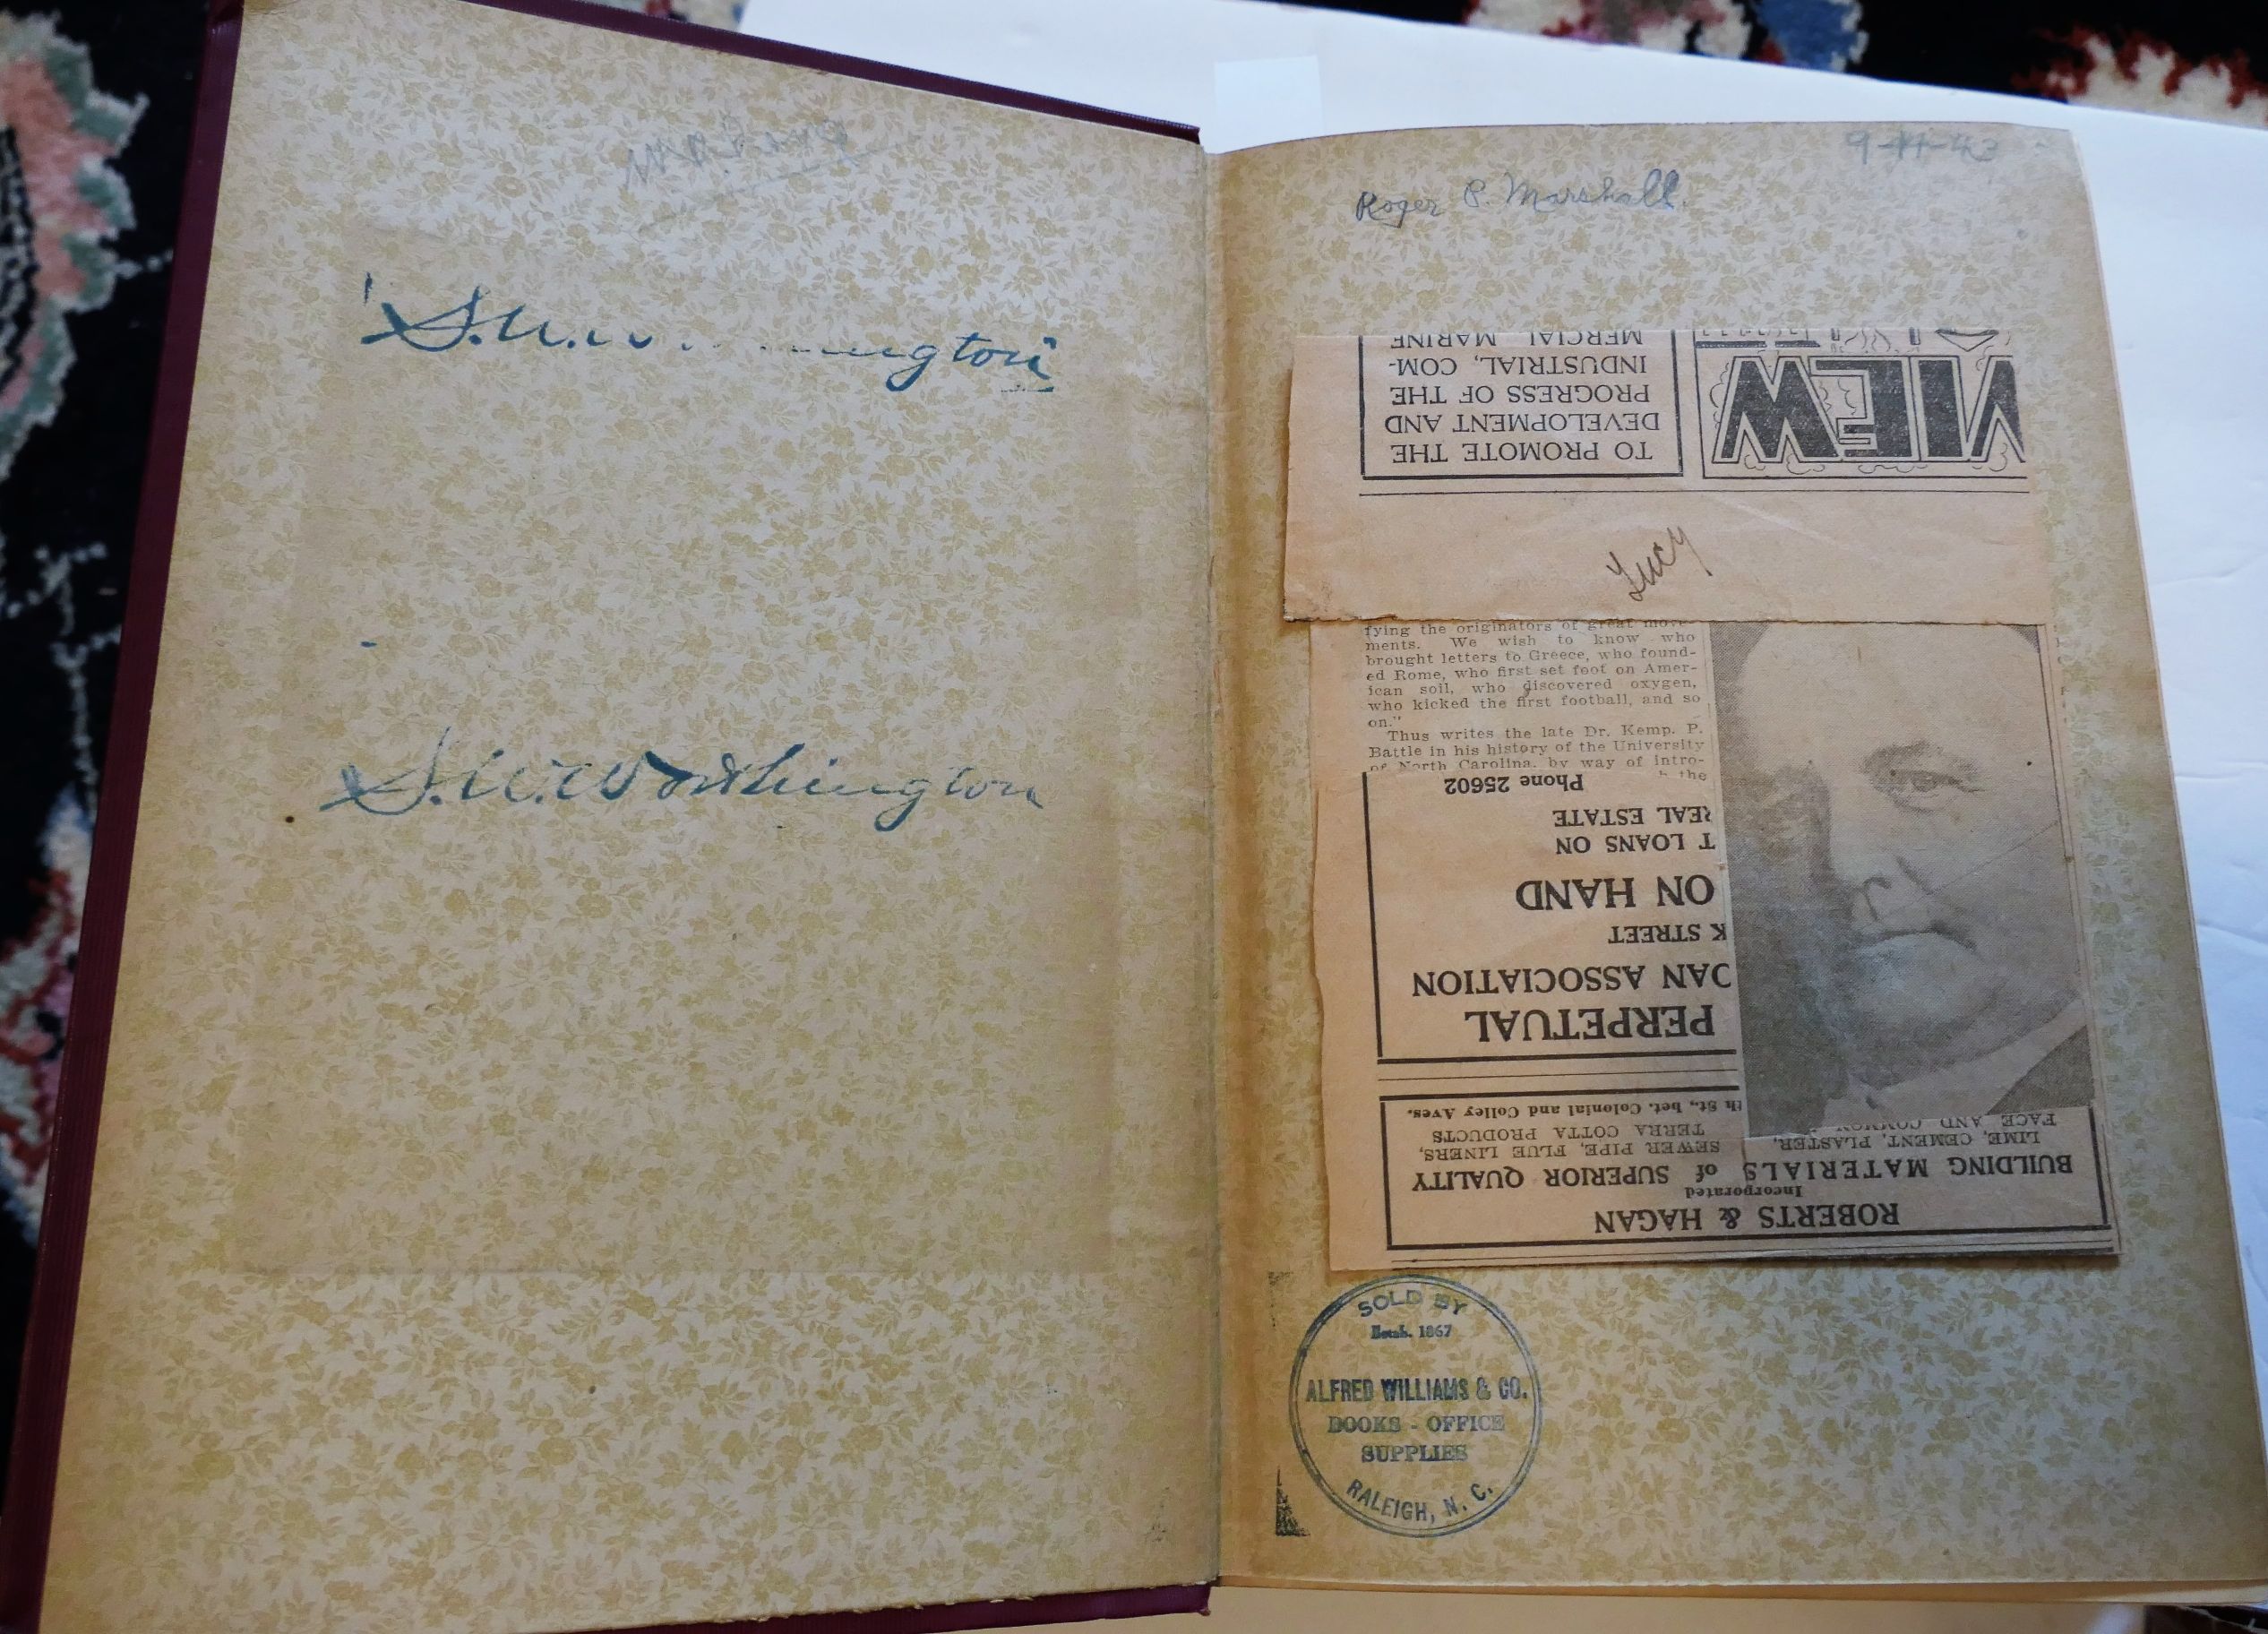 S.W. Worthington
Roger P. Marshall.
9-11-43
TO PROMOTE THE
DEVELOPMENT AND
PROGRESS OF THE
INDUSTRIAL, COM-
MERCIAL MARINE
VIEW
Lucy
fying the originators of great move-
ments. We wish to know who
brought letters to Greece, who found-
ed Rome, who first set foot on Amer-
ican soil, who discovered oxygen,
who kicked the first football, and so
on."
Thus writes the late Dr. Kemp. P.
Battle in his history of the University
of North Carolina, by way of intro-
the
ROBERTS & HAGAN
Incorporated
BUILDING MATERIALS of SUPERIOR QUALITY
LIME, CEMENT, PLASTER, SEWER PIPE, FLUE LINERS,
FACE AND COMMON TERRA COTTA PRODUCTS
th St., bet. Colonial and Colley Aves.
PERPETUAL
OAN ASSOCIATION
K STREET
ON HAND
T LOANS ON
REAL ESTATE
Phone 25602
SOLD BY
Estab. 1867
ALFRED WILLIAMS & CO.
BOOKS - OFFICE
SUPPLIES
RALEIGH, N. C.